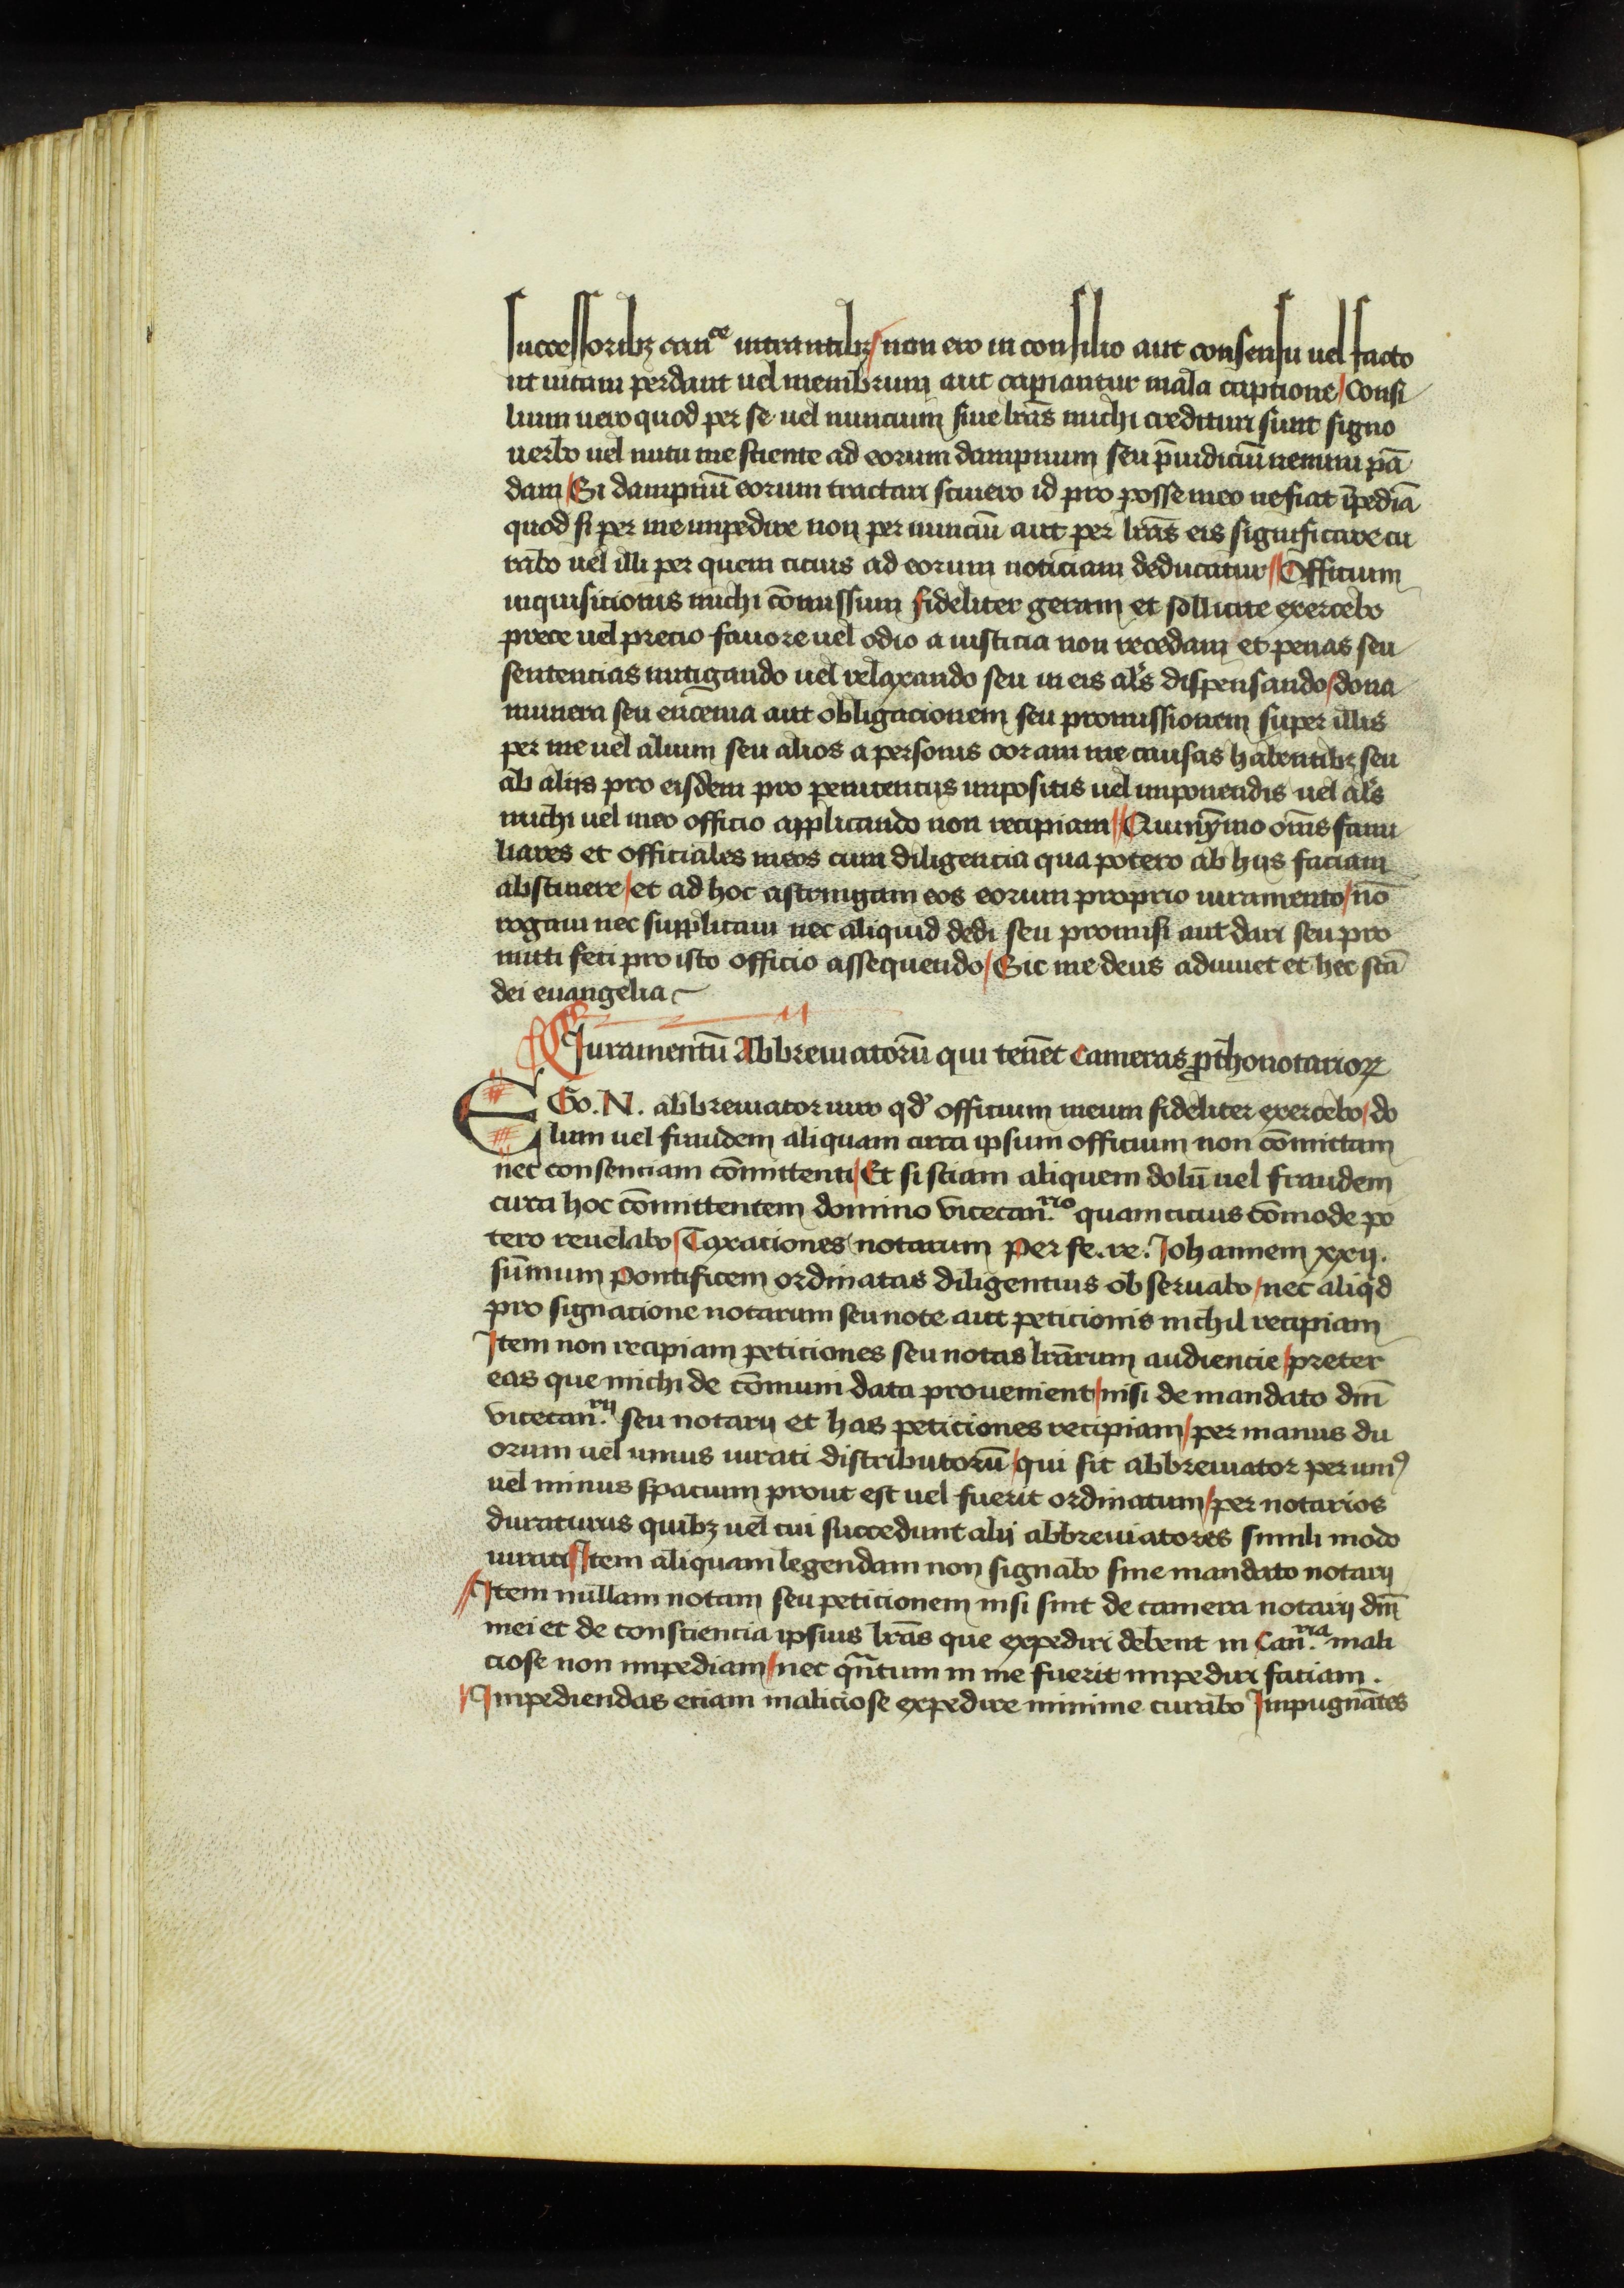 successoribꝫ canᶜᵉ intrantibꝫ / non ero in consilio aut consensu uel facto
ut uitam perdant uel membrum aut capiantur mala captione / Consi
lium uero quod per se uel nuncium siue lr̄as michi credituri sunt signo
uerbo uel nutu me sciente ad eorum dampnum seu p̄iudiciū nemini pā
dam / Si dampnū eorum tractari sciuero id pro posse meo ne fiat īpediā
quod si per me impedire non per nunciū aut per lr̄as eis significare cu
rabo uel illi per quem cicius ad eorum noticiam deducatur // Officium
inquisicionis michi cōmissum fideliter geram et sollicite exercebo
prece uel precio fauore uel odio a iusticia non recedam et penas seu
sentencias mitigando uel relaxando seu in eis al's dispensando / dona
munera seu encenia aut obligacionem seu promissionem super illis
per me uel alium seu alios a personis coram me causas habentibꝫ seu
ab aliis pro eisdem pro penitenciis impositis uel imponendis uel al's
michi uel meo officio applicando non recipiam // Quinȳmo om̄s fami
liares et officiales meos cum diligencia qua potero ab hiis faciam
abstinere / et ad hoc astringam eos eorum proprio iuramento / nō
rogaui nec supplicaui nec aliquid dedi seu promisi aut dari seu pro
mitti feci pro isto officio assequendo / Sic me deus adiuuet et hec scā
dei euangelia
Iuramentū Abbreuiatorū qui tenēt Cameras p̄thonotarioꝝ
EGo. N. abbreuiator iuro qd' officium meum fideliter exercebo / do
lum uel fraudem aliquam circa ipsum officium non cōmittam
nec consenciam cōmittenti / Et si sciam aliquem dolū uel fraudem
circa hoc cōmittentem domino vicecan.ʳⁱᵒ quam cicius cōmode po
tero reuelabo / Taxaciones notarum per fe. re. Johannem xxij.
sūmum pontificem ordinatas diligencius obseruabo / nec aliqd
pro signacione notarum seu note aut peticionis nichil recipiam
Item non recipiam peticiones seu notas lr̄arum audiencie / preter
eas que michi de cōmuni data prouenient / nisi de mandato dn̄i
vicecan.ʳⁱʲ seu notarij et has peticiones recipiam / per manus du
orum uel unius iurati distributorū / qui sit abbreuiator per unꝰ
uel minus spacium prout est uel fuerit ordinatum / per notarios
duraturus quibꝫ uel cui succedunt alij abbreuiatores simili modo
iurati // Item aliquam legendam non signabo sine mandato notarij
// Item nullam notam seu peticionem nisi sint de camera notarij dn̄i
mei et de consciencia ipsius lr̄as que expediri debent in Can.ʳⁱᵃ mali
ciose non impediam / nec qn̄tum in me fuerit impediri faciam.
// Impediendas eciam maliciose expedire minime curabo Impugnātes